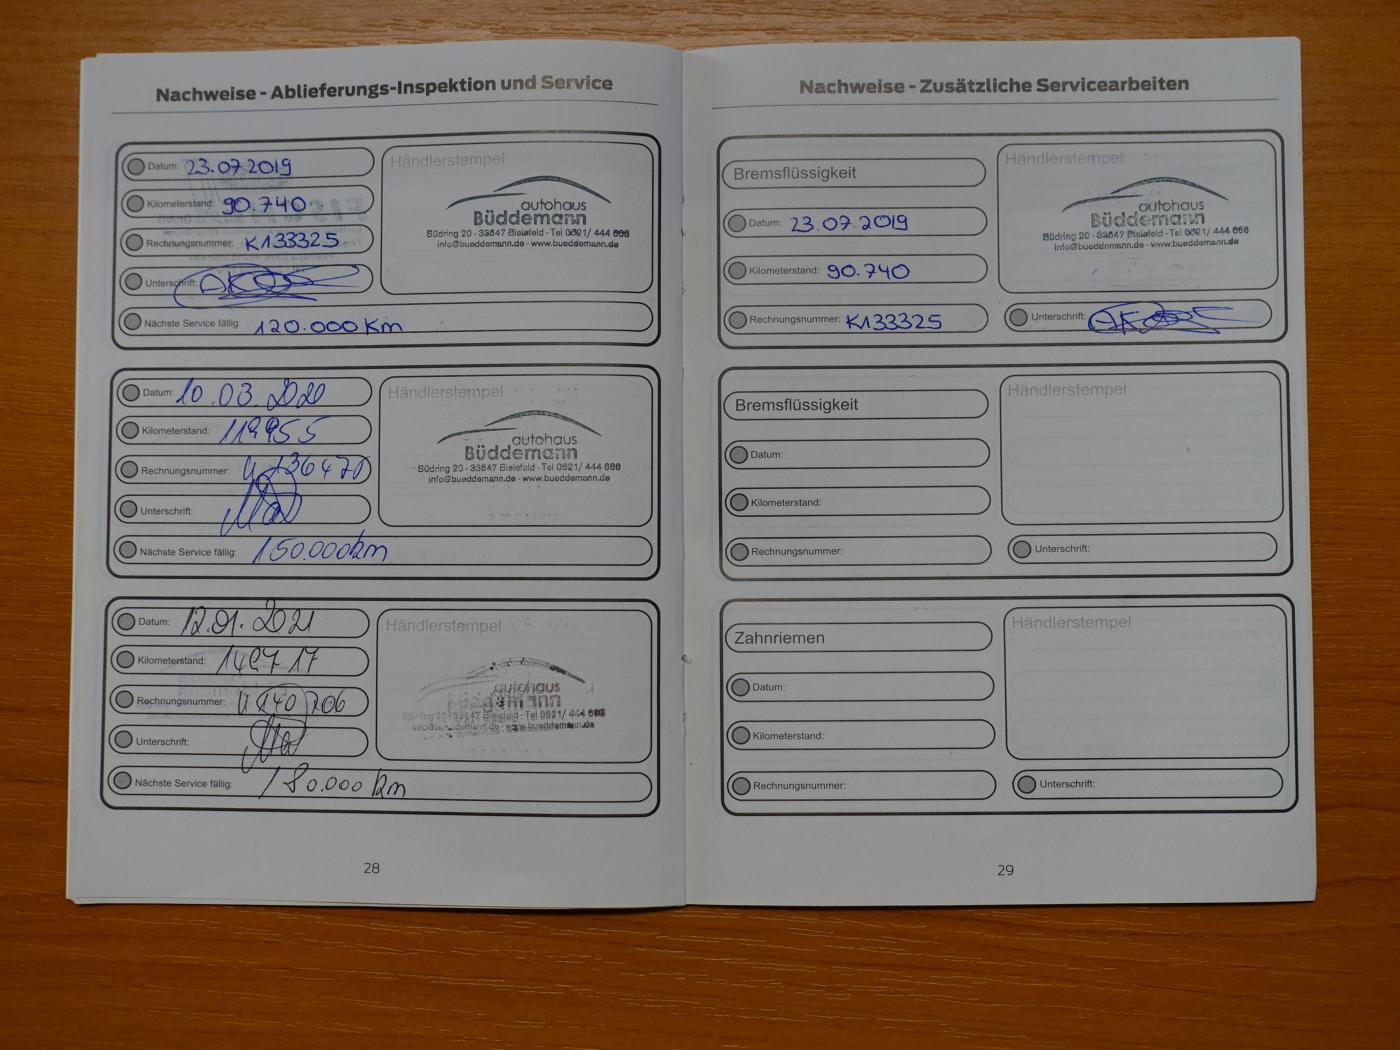 Nachweise - Ablieferungs-Inspektion und Service
Datum: 23.07.2019
Kilometerstand: 90.740
Rechnungsnummer: K133325
Unterschrift:
Nächste Service fällig: 120.000 Km
Händlerstempel
autohaus
Büddemann
Südring 20 - 33647 Bielefeld - Tel 0521/ 444 666
info@bueddemann.de - www.bueddemann.de
Datum: 10.03.2020
Kilometerstand: 119955
Rechnungsnummer:
Unterschrift:
Nächste Service fällig: 150.000km
Händlerstempel
autohaus
Büddemann
Südring 20 - 33647 Bielefeld - Tel 0521/ 444 666
info@bueddemann.de - www.bueddemann.de
Datum: 12.01.2021
Kilometerstand:
Rechnungsnummer:
Unterschrift:
Nächste Service fällig: 180.000 km
Händlerstempel
autohaus
Büddemann
Südring 20 - 33647 Bielefeld - Tel 0521/ 444 666
info@bueddemann.de - www.bueddemann.de
28
Nachweise - Zusätzliche Servicearbeiten
Bremsflüssigkeit
Datum: 23.07.2019
Kilometerstand: 90.740
Rechnungsnummer: K133325
Händlerstempel
autohaus
Büddemann
Südring 20 - 33647 Bielefeld - Tel 0521/ 444 666
info@bueddemann.de - www.bueddemann.de
Unterschrift:
Bremsflüssigkeit
Datum:
Kilometerstand:
Rechnungsnummer:
Händlerstempel
Unterschrift:
Zahnriemen
Datum:
Kilometerstand:
Rechnungsnummer:
Händlerstempel
Unterschrift:
29